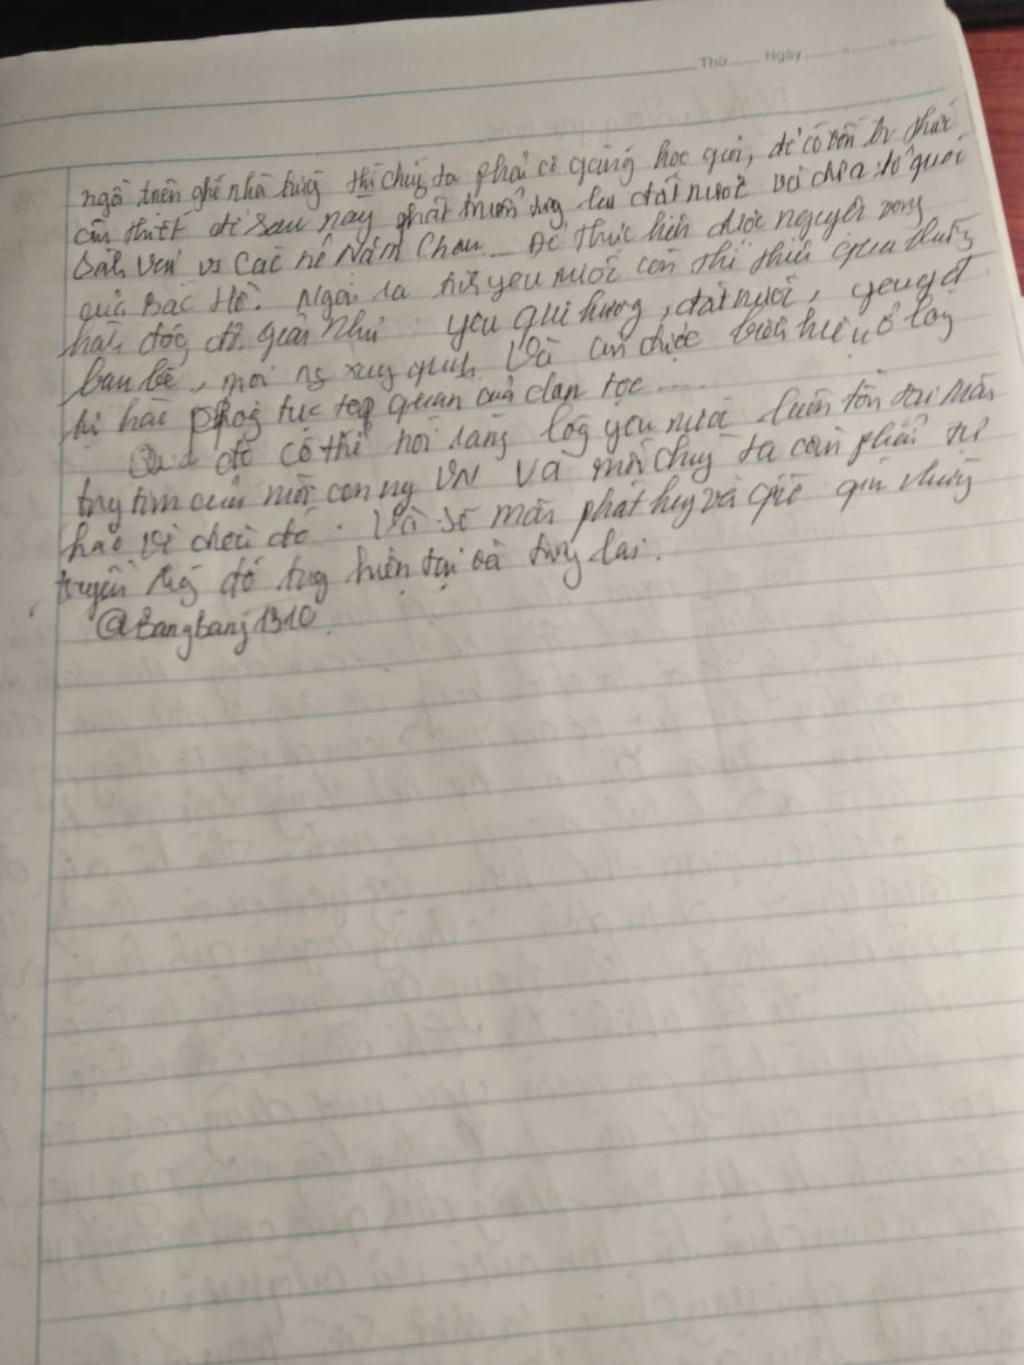 Thứ Ngày
ngồi trên ghế nhà trường thì chúng ta phải cố gắng học giỏi, để có vốn tri thức
cần thiết để sau này phát triển xây đất nước và đưa tổ quốc
sánh vai vs các nc Năm Châu... Để thực hiện được nguyện vọng
của Bác Hồ. Ngoài ra tình yêu nước còn thể hiện qua những
hành động, đơn giản như yêu quê hương, đất nước, yêu gđ
bạn bè, mọi ng xung quanh. Và còn được biểu hiện ở lòng
tự hào phong tục tập quán của dân tộc.....
Qua đó có thể nói rằng lòng yêu nước luôn tồn tại mãi
trong tim của mỗi con ng VN và mỗi chúng ta cần phải tự
hào về điều đó. Và sẽ mãi phát huy và giữ gìn những
truyền thống đó trong hiện tại và tương lai.
@tangtang1310